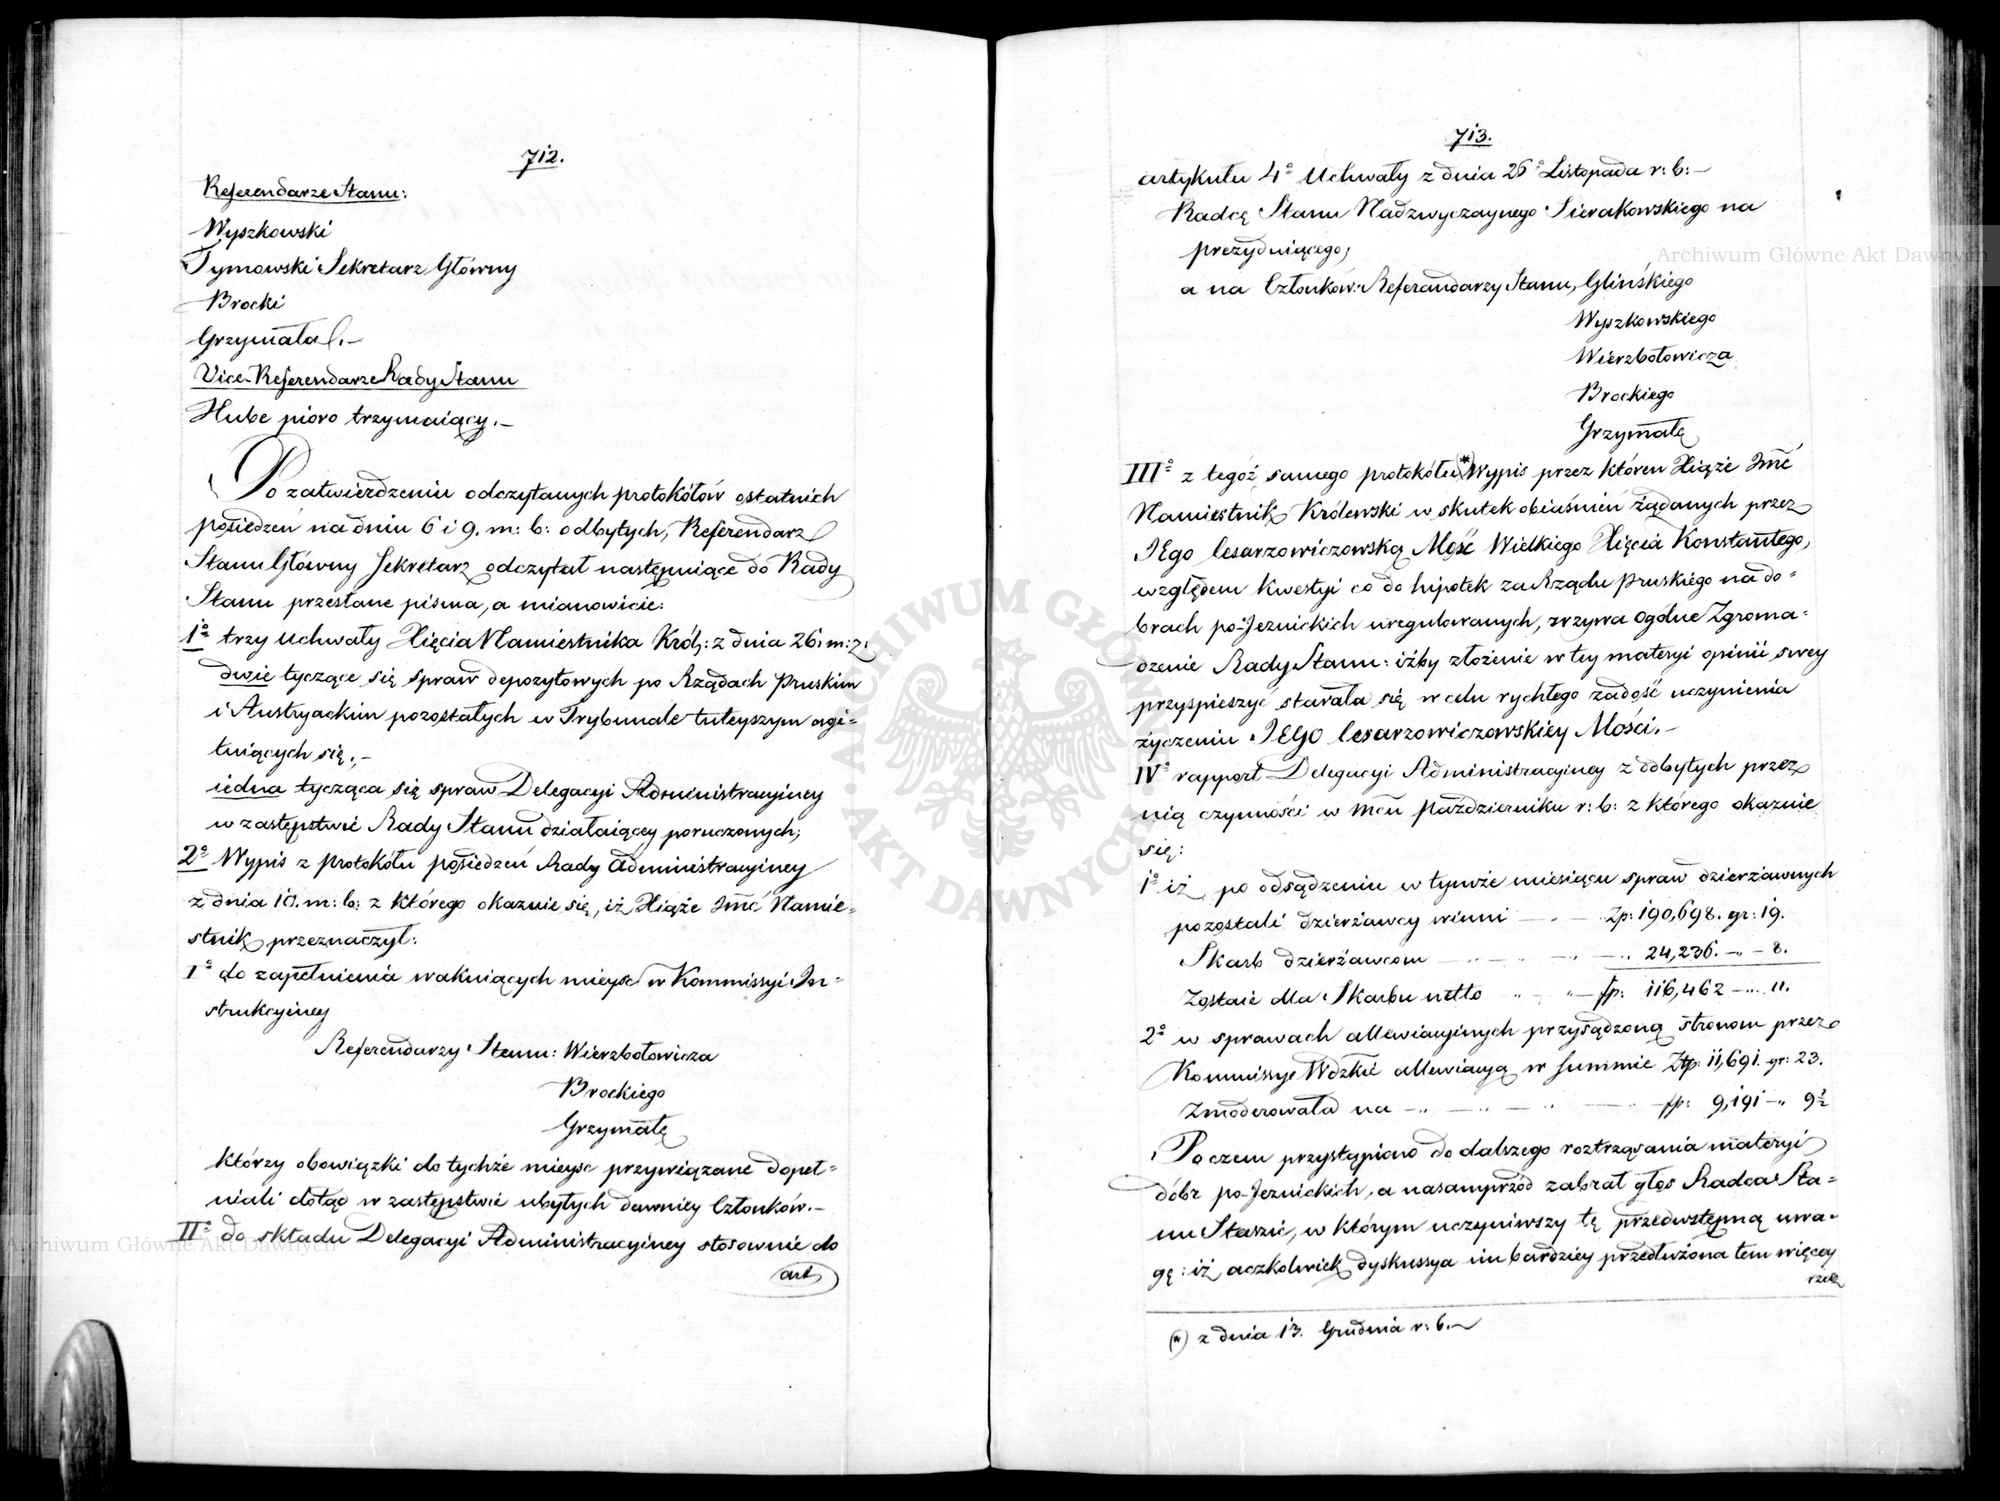 712.
Referendarze Stanu:
Wyszkowski
Tymowski Sekretarz Główny
Brocki
Grzymała.—
Vice-Referendarze Rady Stanu
Hube pioro trzymaiący.—
Po zatwierdzeniu odczytanych protokółów ostatnich
posiedzeń na dniu 6 i 9. m: b: odbytych, Referendarz
Stanu Główny Sekretarz odczytał następuiące do Rady
Stanu przesłane pisma, a mianowicie:
1º trzy Uchwały Xięcia Namiestnika Król: z dnia 26. m: z:
dwie tyczące się spraw depozytowych po Rządach Pruskim
i Austryackim pozostałych w Trybunale tuteyszym agi=
tuiących się.—
iedna tycząca się spraw Delegacyi Administracyiney
w zastępstwie Rady Stanu działaiącey poruczonych;
2º Wypis z protokółu posiedzeń Rady Administracyiney
z dnia 10. m: b: z którego okazuie się, iż Xiąże Jmć Namie=
stnik przeznaczył:
Iº do zapełnienia wakuiących mieysc w Kommissyi In=
strukcyiney
Referendarzy Stanu: Wierzbołowicza
Brockiego
Grzymałę
którzy obowiązki do tychże mieysc przywiązane dopeł=
niali dotąd w zastępstwie ubyłych dawniey Członków.—
IIº do składu Delegacyi Administracyiney stosownie do
art
713.
artykułu 4º Uchwały z dnia 26º Listopada r: b:—
Radcę Stanu Nadzwyczaynego Sierakowskiego na
prezyduiącego,
a na Członków: Referendarzy Stanu, Glińskiego
Wyszkowskiego
Wierzbołowicza
Brockiego
Grzymałę
IIIº z tegoż samego protokółu (*) Wypis przez któren Xiąże Jmć
Namiestnik Królewski w skutek obiaśnień żądanych przez
JEgo Cesarzowiczowską Mość Wielkiego Xięcia Konstantego,
względem kwestyi co do hipotek za Rządu pruskiego na do=
brach po-Jezuickich uregulowanych, wzywa ogólne Zgroma=
dzenie Rady Stanu: iżby złożenie w tey materyi opinii swey
przyspieszyć starała się w celu rychłego zadość uczynienia
życzeniu JEGO Cesarzowiczowskiey Mości.—
IVº rapport Delegacyi Administracyiney z odbytych przez
nią czynności w mcu Październiku r: b: z którego okazuie
się:
1º iż po odsądzeniu w tymże miesiącu spraw dzierżawnych
pozostali dzierżawcy winni — „ — Zp: 190,698. gr: 19.
Skarb dzierżawcom — „ — „ — „ — „ 24,236. — „ — 8.
Zostaie dla Skarbu netto „ — „ — fp: 116,462 — „ 11.
2º w sprawach allewiacyinych przysądzoną stronom przez
Kommissye Wdzkie allewiacyą w summie Ztp: 11,691. gr: 23.
Zmoderowała na — „ — „ — fp: 9,191 — „ 9½
Poczem przystąpiono do dalszego roztrząsania materyi
dóbr po-Jezuickich, a nasamprzód zabrał głos Radca Sta=
nu Staszic, w którym uczyniwszy tę przedwstępną uwa=
gę: iż aczkolwiek dyskussya im bardziey przedłużona tem więcey
rzecz
(*) z dnia 13. Grudnia r: b.—
Archiwum Główne Akt Dawnych
Archiwum Główne Akt Dawnych
ARCHIWUM GŁÓWNE AKT DAWNYCH